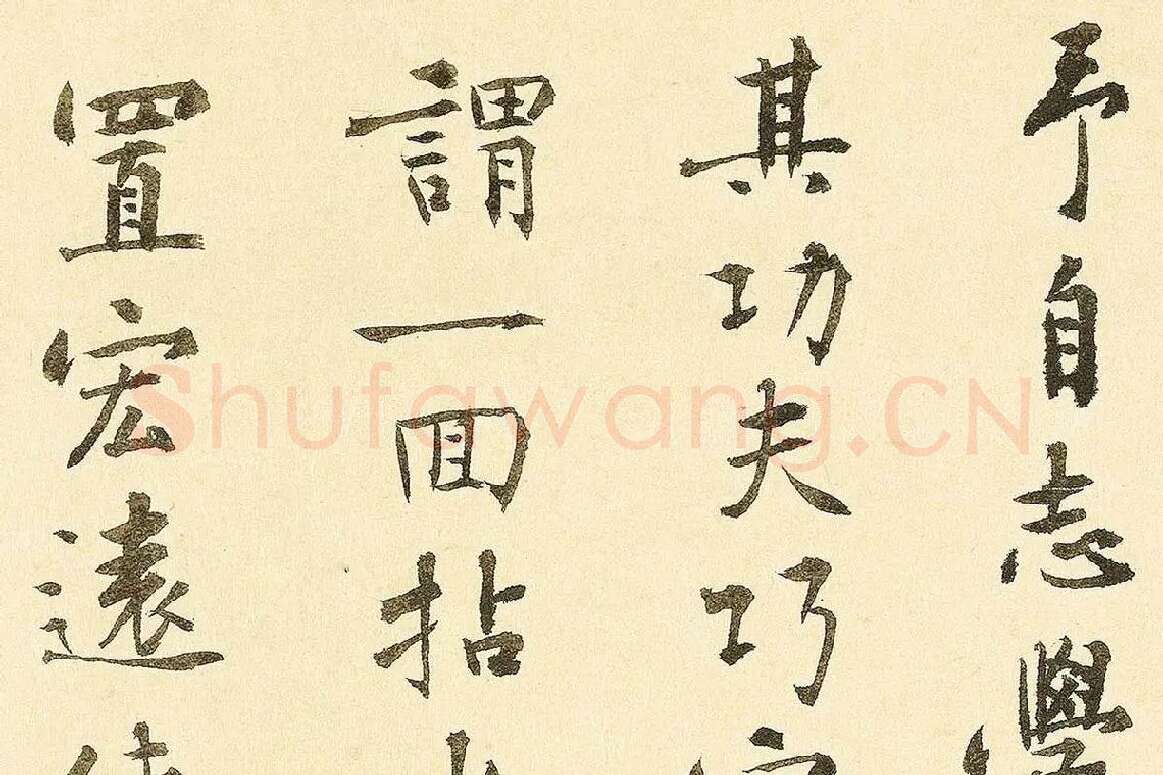 予自志學
其功夫巧
謂一囬拈
置宏遠
Shufawang.CN